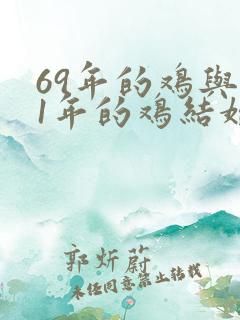 69年的鸡與
1年的鸡結
郭炘蔚
未经同意禁止转载